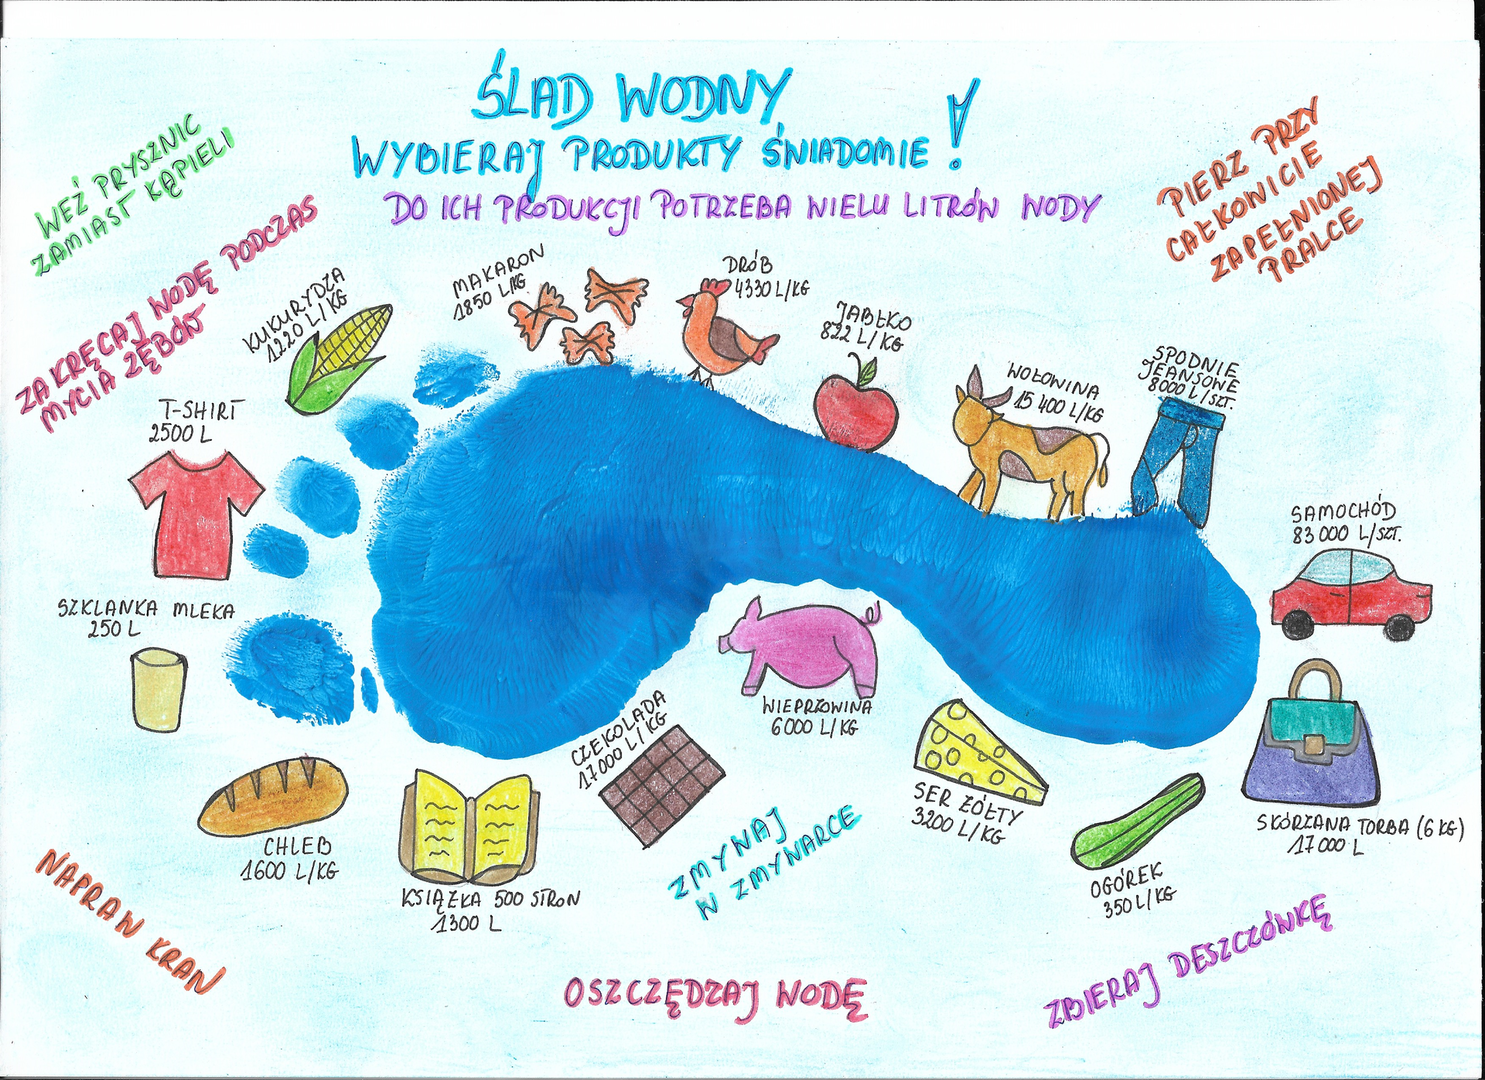 ŚLAD WODNY
WYBIERAJ PRODUKTY ŚWIADOMIE !
DO ICH PRODUKCJI POTRZEBA WIELU LITRÓW WODY
WEŹ PRYSZNIC
ZAMIAST KĄPIELI
ZAKRĘCAJ WODĘ PODCZAS
MYCIA ZĘBÓW
PIERZ PRZY
CAŁKOWICIE
ZAPEŁNIONEJ
PRALCE
KUKURYDZA
1220 L/KG
MAKARON
1850 L/KG
DRÓB
4330 L/KG
JABŁKO
822 L/KG
WOŁOWINA
15 400 L/KG
SPODNIE
JEANSOWE
8000 L/SZT.
T-SHIRT
2500 L
SAMOCHÓD
83 000 L/SZT.
SZKLANKA MLEKA
250 L
WIEPRZOWINA
6000 L/KG
CZEKOLADA
17000 L/KG
SER ŻÓŁTY
3200 L/KG
SKÓRZANA TORBA (6 KG)
17000 L
CHLEB
1600 L/KG
KSIĄŻKA 500 STRON
1300 L
OGÓREK
350 L/KG
ZMYWAJ
W ZMYWARCE
NAPRAW KRAN
OSZCZĘDZAJ WODĘ
ZBIERAJ DESZCZÓWKĘ